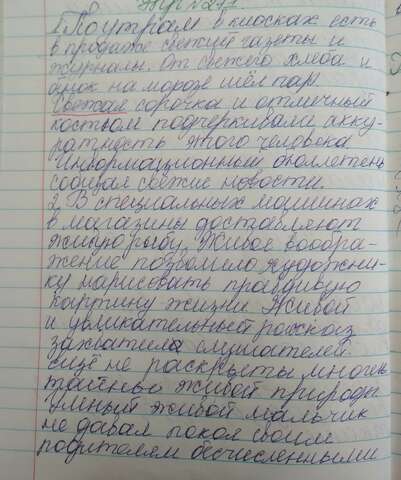 Упр №271.
1. По утрам в киосках есть
в продаже свежий газеты и
журналы. От свежего хлеба и
булок на морозе шёл пар.
Свежая сорочка и отличный
костюм подчеркивали акку-
ратность этого человека
Информационный бюллетень
собщал свежие новости.
2. В специальных машинах
в магазины доставляют
живую рыбу. Живое вообра-
жение позволило художни-
ку нарисовать правдивую
картину жизни Живой
и увлекательный рассказ
захватила слушателей.
ещё не раскрыты многие
тайны живой природы
Умный живой мальчик
не давал покоя своим
родителям бесчисленными